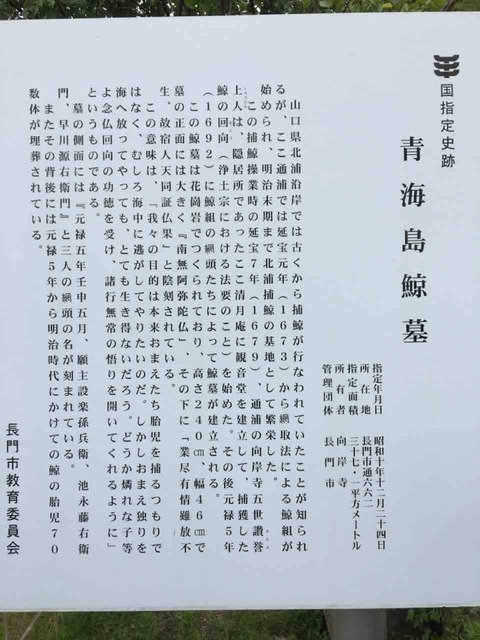 国指定史跡
青海島鯨墓
指定年月日 昭和十年十二月二十四日
所在地 長門市通六六二
指定面積 三十七・一平方メートル
所有者 向岸寺
管理団体 長門市
山口県北浦沿岸では古くから捕鯨が行なわれていたことが知られ
るが、ここ通浦では延宝元年(1673)から網取法による鯨組が
始められ、明治末期まで北浦捕鯨の基地として繁栄した。
この捕鯨操業時の延宝7年(1679)、通浦の向岸寺五世讃誉
上人は、隠居所であったここ清月庵に観音堂を建立して、捕獲した
鯨の回向(浄土宗における法要のこと)を始めた。その後元禄5年
(1692)に鯨組の網頭たちによって鯨墓が建立される。
この鯨墓は花崗岩でつくられており、高さ240㎝、幅46㎝で
墓の正面には大きく『南無阿弥陀仏』、その下に「業尽有情雖放不
生、故宿人天同証仏果」と陰刻されている。
この意味は、「我々の目的は本来おまえたち胎児を捕るつもりで
はなく、むしろ海中に逃がしてやりたいのだ。しかしおまえ独りを
海へ放ってやっても、とても生き得ないだろう。どうか憐れな子等
よ念仏回向の功徳を受け、諸行無常の悟りを開いてくれるように」
というものである。
墓の側面には『元禄五年壬申五月、願主設楽孫兵衛、池永藤右衛
門、早川源右衛門』と三人の網頭の名が刻まれている。
またその背後には元禄5年から明治時代にかけての鯨の胎児70
数体が埋葬されている。
長門市教育委員会